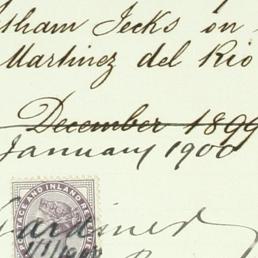 tham Jecks on
Martinez del Rio
December 1899
January 1900
Gardiner
POSTAGE AND INLAND REVENUE
1/1/1900